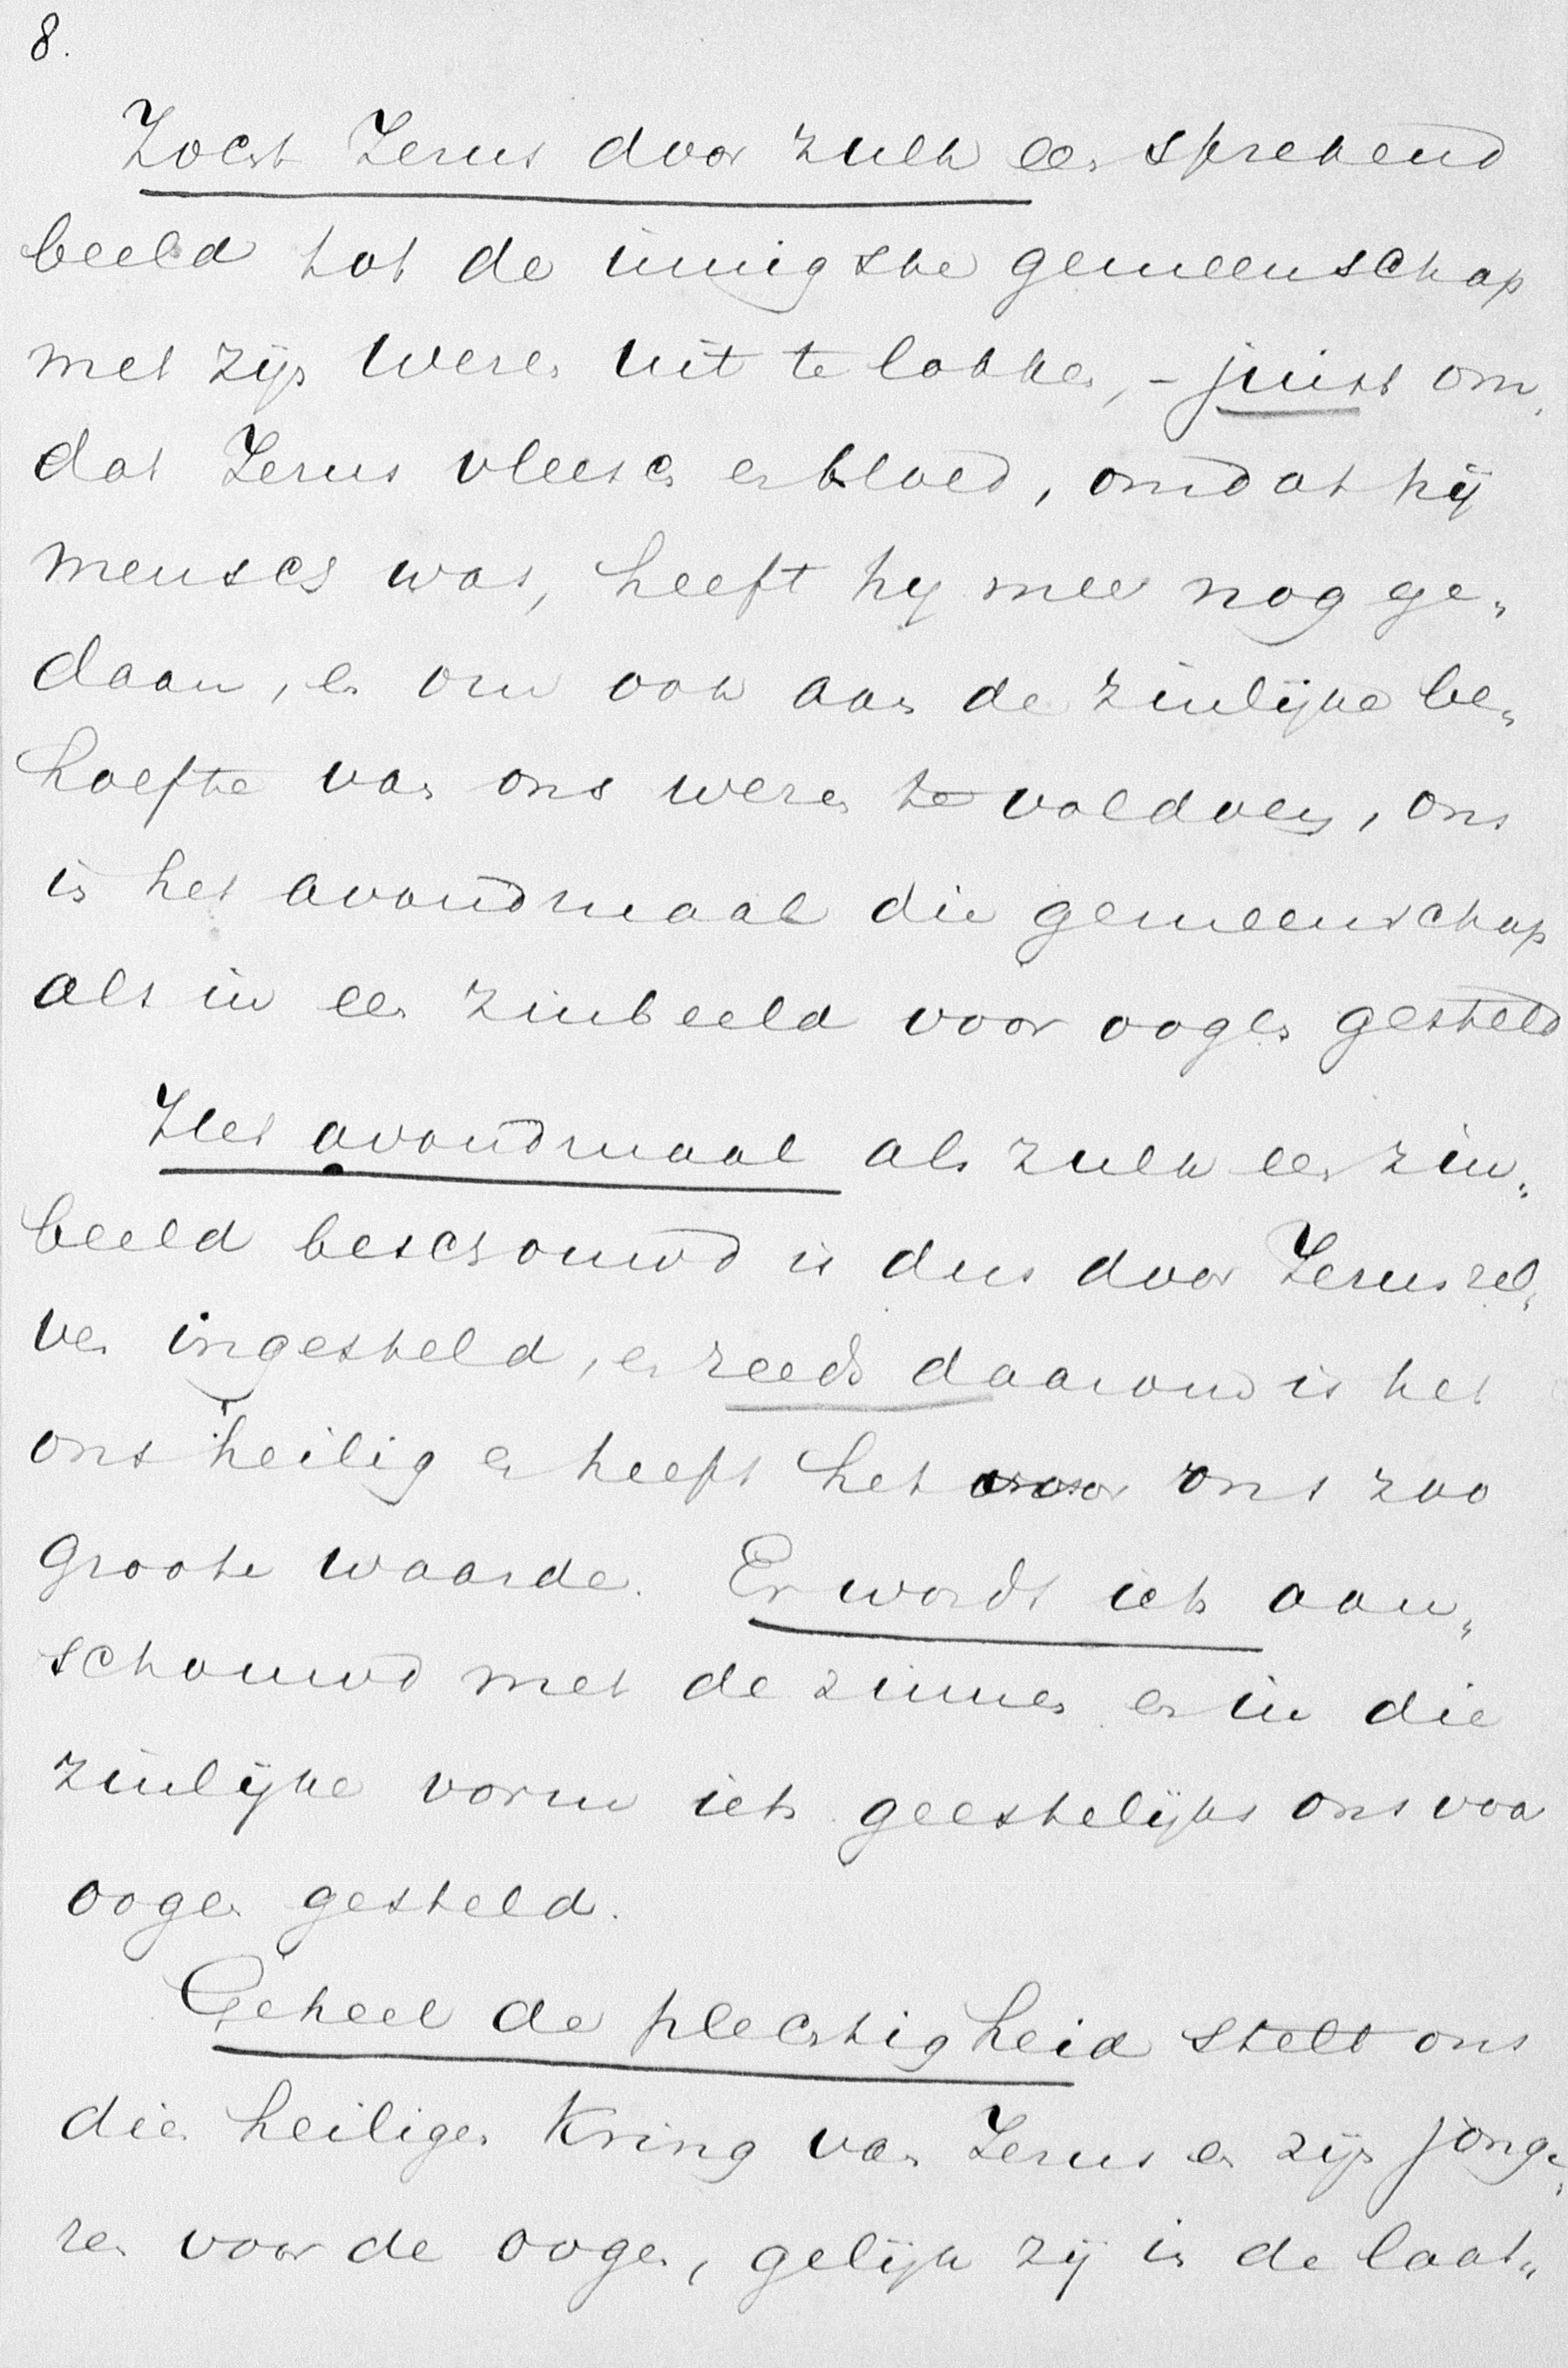 8.
Zocht Jezus door zulk een sprekend
beeld tot de innigste gemeenschap
met zijn wezen uit te lokken, - juist om„
dat Jezus vleesch en bloed, omdat hij
mensch was, heeft hij meer nog ge„
daan, en om ook aan de zinlijke be„
hoefte van ons wezen te voldoen, ons
in het avondmaal die gemeenschap
als in een zinbeeld voor oogen gesteld
Het avondmaal als zulk een zin„
beeld beschouwd is dus door Jezus zel„
ven ingesteld, en reeds daarom is het
ons heilig en heeft het voor ons zoo
groote waarde. Er wordt iets aan„
schouwd met de zinnen en in die
zinlijke vorm iets geestelijks ons voor
oogen gesteld.
Geheel de plechtigheid stelt ons
dien heiligen kring van Jezus en zijn jonge„
ren voor de oogen, gelijk zij in de laat„